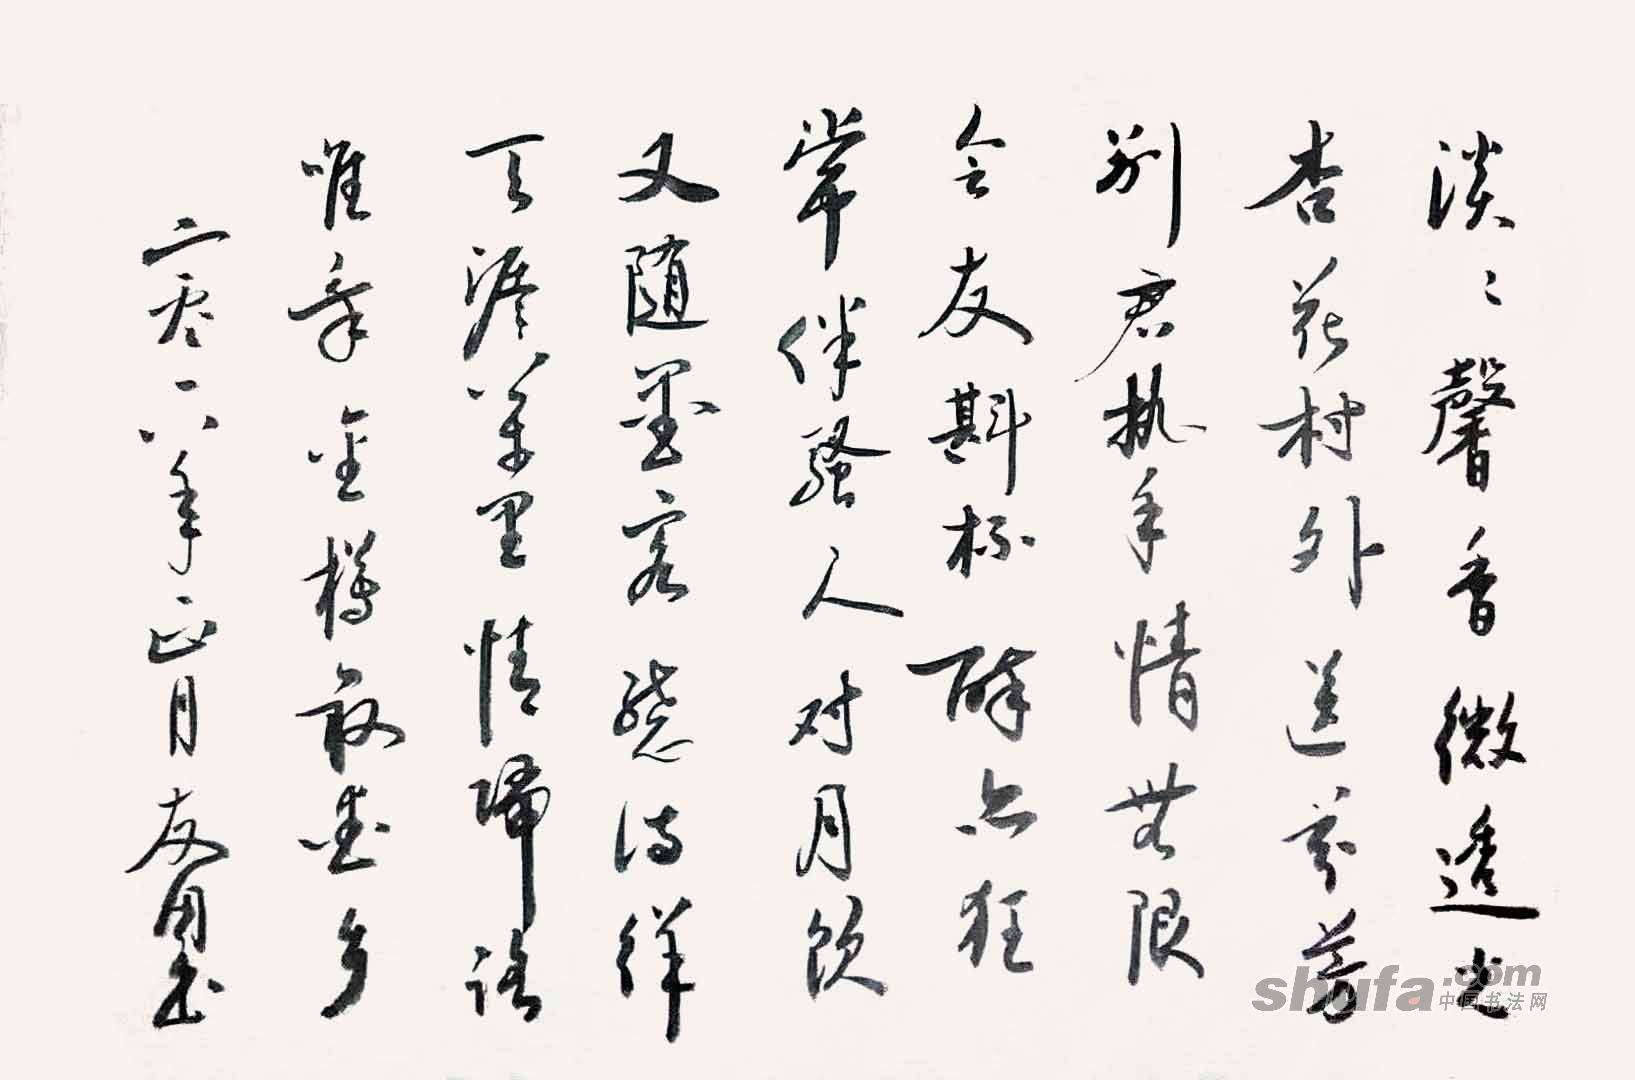 淡〻馨香微透光
杏花村外送芬芳
别君执手情無限
会友斟杯醉亦狂
常伴骚人对月饮
又随墨客诗
天涯万里情
唯金樽乡
二零一八年正月友国书
shufa.com
中国书法网